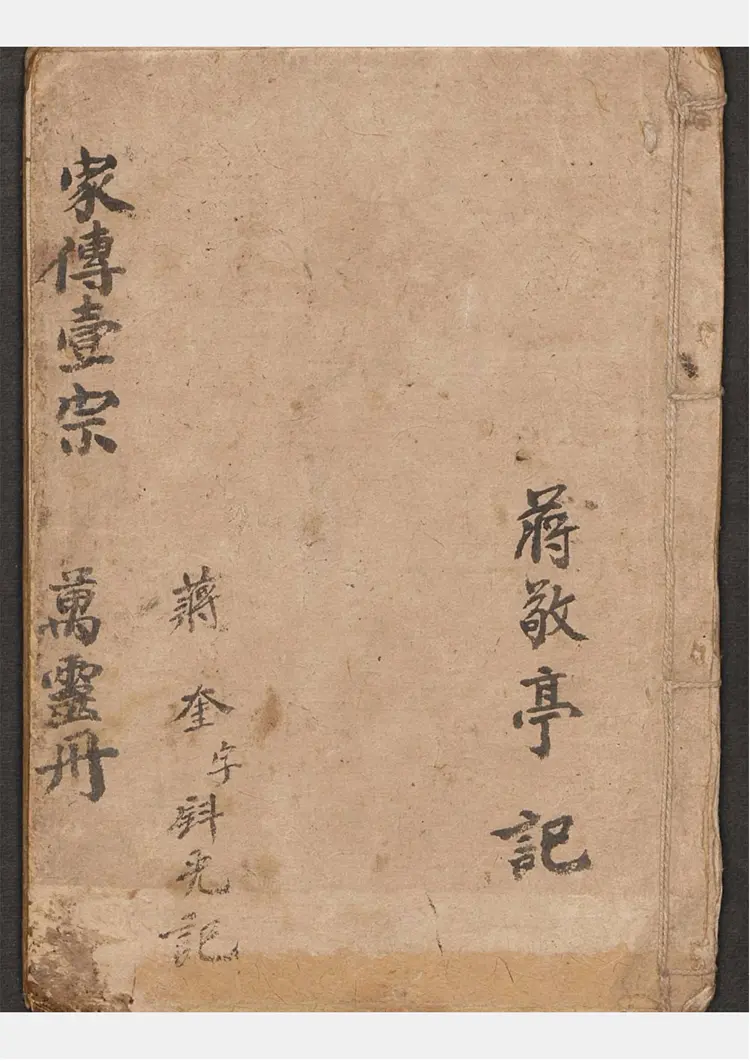 蔣敬亭記
蔣奎字斟元記
家傳壹宗 萬靈冊